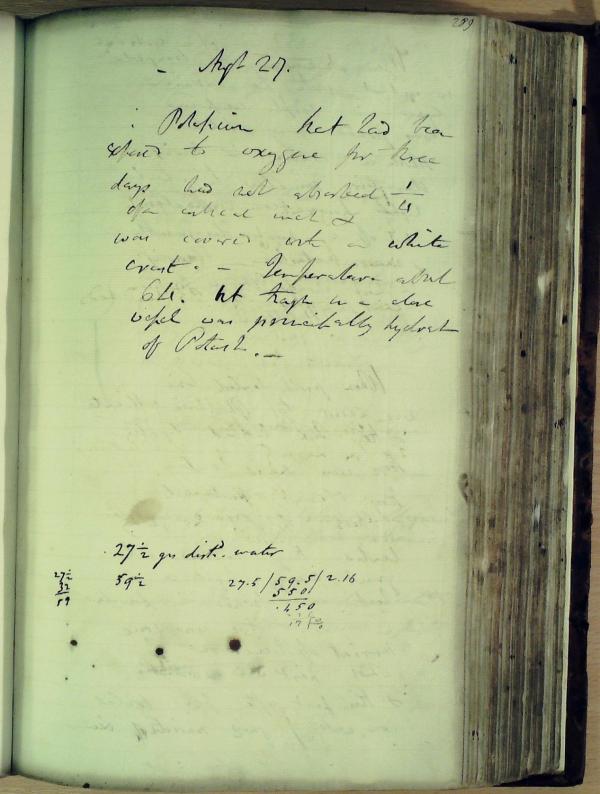 289
- Augt 27.
Potassium that had been
exposed to oxygene for three
days had not absorbed 1/4
of a cubical inch &
was covered with a white
crust. - Temperature about
64. but tragt in a close
vessel was principally hydrat
of Potash. -
27 1/2 grs distd. water
27 1/2
32
59
59 1/2
27.5/59.5/2.16
550
.450